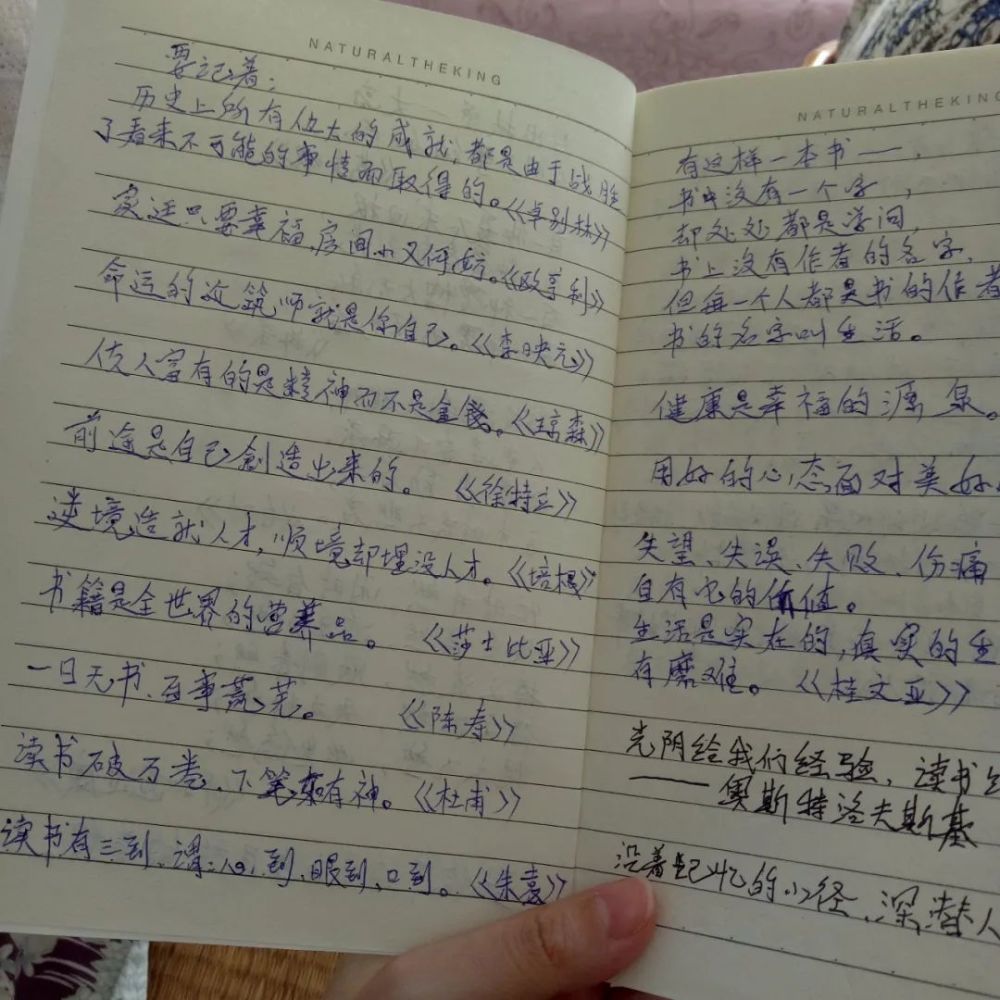 NATURALTHEKING
要记着：
历史上所有伟大的成就，都是由于战胜
了看来不可能的事情而取得的。《卓别林》
家廷只要幸福，房间小又何妨。《欧亨利》
命运的近筑师就是你自己。《李映元》
使人富有的是精神而不是金钱。《琼森》
前途是自己創造出来的。《徐特立》
逆境造就人才，顺境却埋没人才。《培根》
书籍是全世界的营养品。《莎士比亚》
一日无书，百事荒芜。《陈寿》
读书破万卷，下笔有神。《杜甫》
读书有三到，谓：心到，眼到，口到。《朱熹》
NATURALTHEKING
有这样一本书——，
书中没有一个字，
却处处都是学问，
书上没有作者的名字，
但每一个人都是书的作者
书的名字叫生活。
健康是幸福的源泉。
用好的心态面对美好
失望、失误、失败、伤痛
自有它的价值。
生活是实在的，真实的生
有磨难。《桂文亚》
光阴给我们经验，读书
——奥斯特洛夫斯基
沿着记忆的小径，深潜人